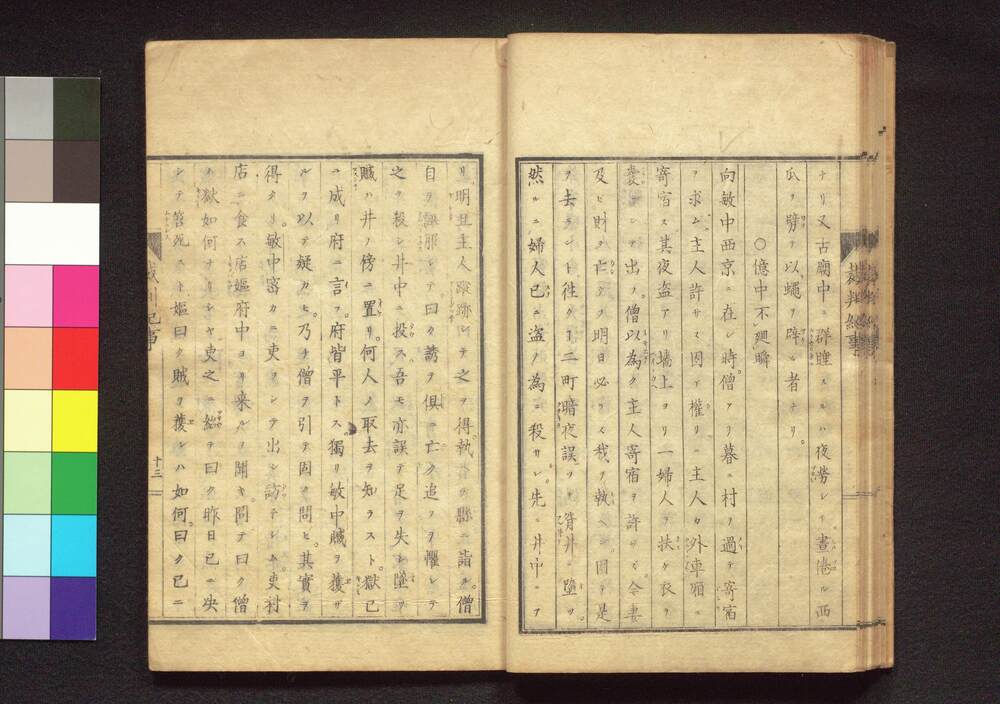 ナリ又古廟中ニ群睡スルハ夜労レテ昼倦ル西
瓜ヲ劈テ以蠅ヲ辟ル者ナリ。
○億中不廻瞬
向敏中西京ニ在シ時。僧アリ暮ニ村ヲ過テ寄宿
ヲ求ム。主人許サス因テ權リニ主人カ外車廂ニ
寄宿ス其夜盗アリ墻上ヨリ一婦人ヲ扶ケ衣ヲ
シテ出ツ。僧以為ク主人寄宿ヲ許サズ今妻
及ヒ財ヲ亡フ明日必ラス我ヲ執ヘン。因テ是
ヲ去ラント往ク一二町暗夜誤ヲ眢井ニ墮ツ。
然ルニ婦人已ニ盗ノ為ニ殺サレ。先ニ井中ニア
リ明旦主人蹤跡シテ之ヲ得。執ヘテ縣ニ詣ル。僧
自ラ誣服シテ曰ク誘テ倶ニ亡ク追フヲ懼レテ
之ヲ殺シ井中ニ投ス。吾モ亦誤テ足ヲ失シ墮ツ
贓ハ井ノ傍ニ置リ。何人ノ取去ヲ知ラスト。獄已
ニ成リ府ニ言フ。府皆平トス獨リ敏中贓ヲ獲ザ
ルヲ以テ疑カヒ。乃チ僧ヲ引テ固ク問ヒ。其實ヲ
得タリ。敏中密カニ吏ヲシテ出シ訪ハシム。吏村
店ニ食ス店嫗府中ヨリ来ルヲ聞キ問テ曰ク僧
ノ獄如何ナリシヤ吏之ニ紿テ曰ク昨日已ニ决
シテ笞死スト嫗曰ク賊ヲ獲レハ如何。曰ク已ニ
裁判紀事
十三